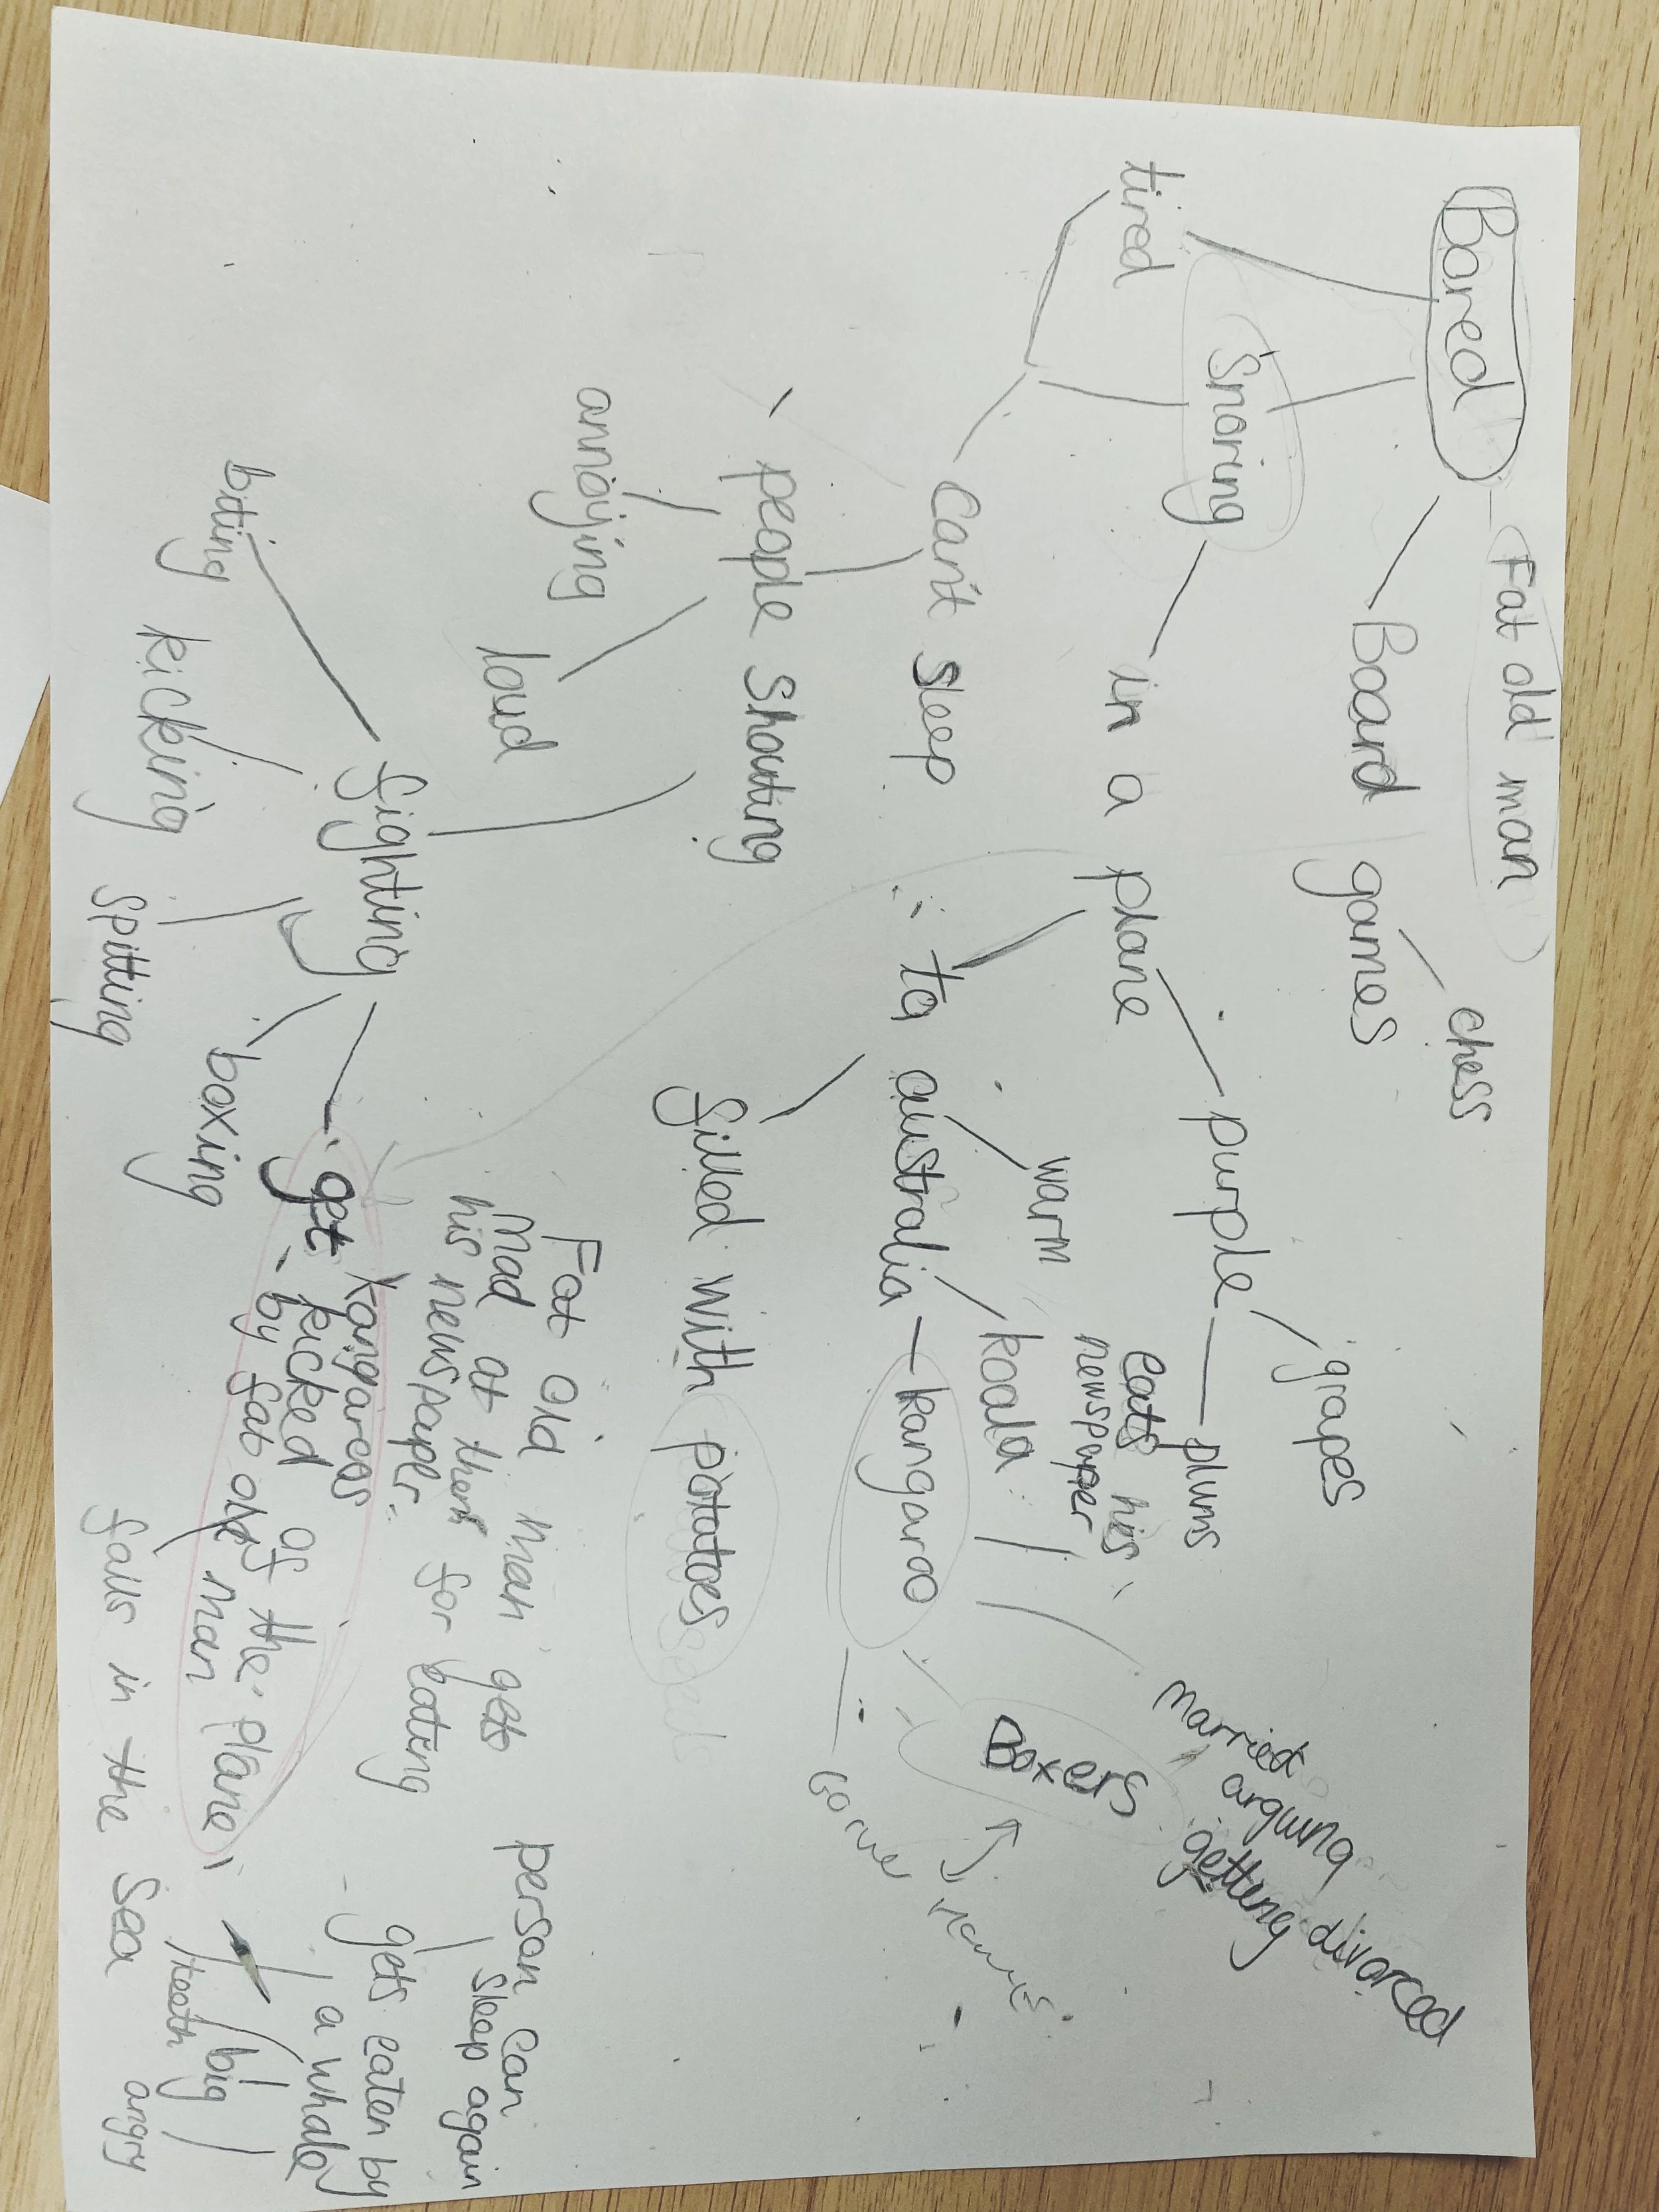 Bored
Fat old man
Board games
chess
tired
Snoring
in a plane
purple
grapes
plums
eats his
newspaper
can't sleep
to australia
warm
koala
kangaroo
Boxers
married
arguing
getting divorced
people shouting
filled with potatoes
annoying
loud
Fat old man gets
mad at them for eating
his newspaper.
person can
sleep again
fighting
biting
kicking
spitting
boxing
kangaroos
get kicked of the plane
by fat old man
falls in the sea
gets eaten by
a whale
big
teeth
angry